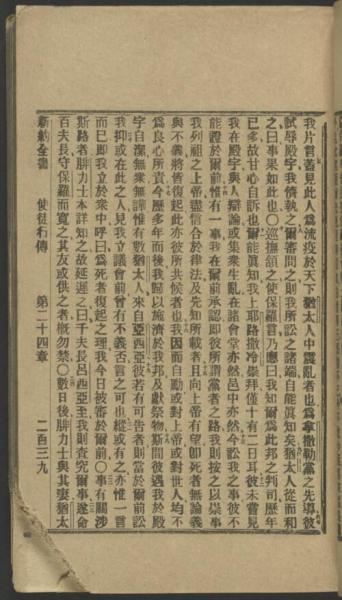 我片言蓋見此人爲流疫於天下猶太人中震亂者也爲拿撒勒黨之先導彼
試辱殿宇我儕執之爾審問之則我所訟之諸端自能眞知矣猶太人從而和
之曰事果如此也〇巡撫頷之使保羅言乃應曰我知爾爲此邦之判司歷年
已多故甘心自訴也爾能眞知我上耶路撒冷崇拜僅十有二日耳彼未嘗見
我在殿宇與人辯論或集衆生亂在諸會堂亦然邑中亦然今訟我之事彼不
能證於爾前惟有一事我在爾前承認即彼所謂黨者之路我則按之以崇事
我列祖之上帝盡信合於律法及先知所載者且向上帝有望卽死者無論義
與不義將皆復起此亦彼所共候者也我因而自勵或對上帝或對世人均不
爲良心所責今歷多年而後我歸以施濟於我邦及獻祭物斯間彼遇我於殿
宇自潔無衆無譁惟有數猶太人來自亞西亞彼若有可告者則當於爾前訟
我抑或在此之人見我立議會前曾有不義否言之可也縱或有之亦惟一言
而已卽我立於衆中呼曰爲死者復起之理我今日被審於爾前〇事有關涉
斯路者腓力士本詳知之故延遲之曰千夫長呂西亞至我則查究爾事遂命
百夫長守保羅而寬之其友或供之者槪勿禁〇數日後腓力士與其妻猶太
新約全書 使徒行傳 第二十四章 二百三九